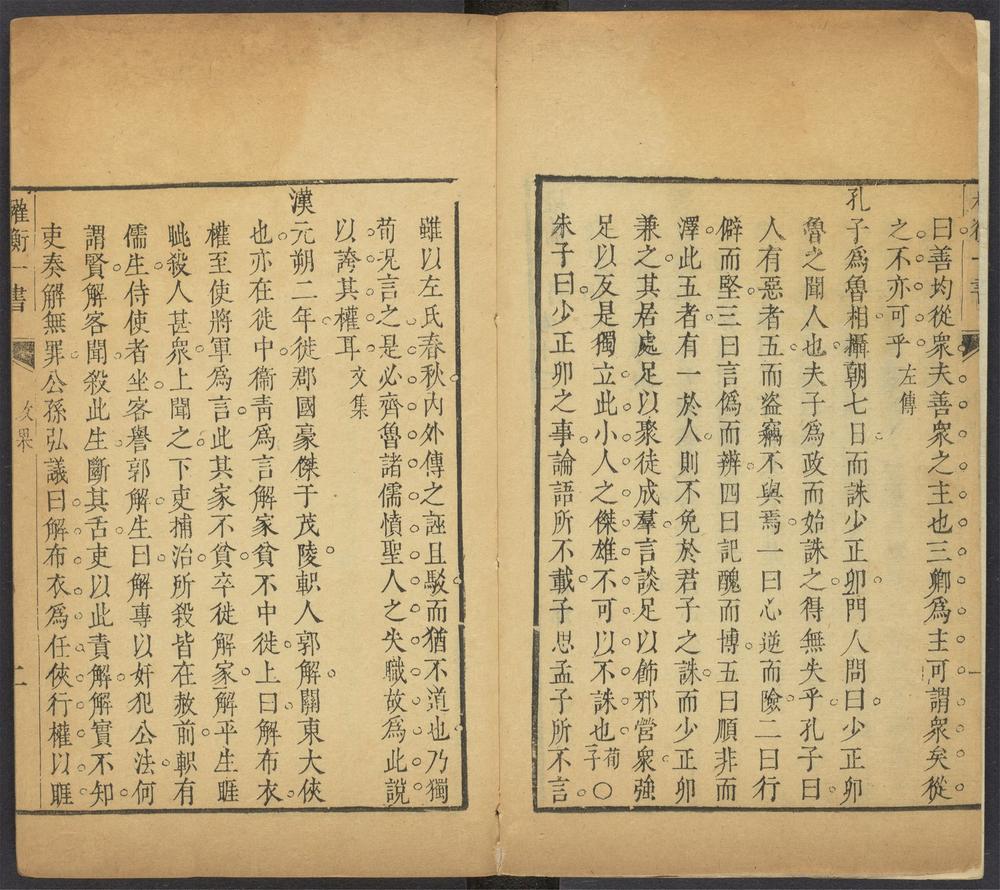 曰善均從衆夫善衆之主也三卿爲主可謂衆矣從
之不亦可乎 左傳
孔子爲魯相攝朝七日而誅少正卯門人問曰少正卯
魯之聞人也夫子爲政而始誅之得無失乎孔子曰
人有惡者五而盜竊不與焉一曰心逆而險二曰行
僻而堅三曰言僞而辨四曰記醜而博五曰順非而
澤此五者有一於人則不免於君子之誅而少正卯
兼之其居處足以聚徒成羣言談足以飾邪營衆強
足以反是獨立此小人之傑雄不可以不誅也 荀子 〇
朱子曰少正卯之事論語所不載子思孟子所不言
雖以左氏春秋內外傳之誣且駁而猶不道也乃獨
荀況言之是必齊魯諸儒憤聖人之失職故爲此說
以誇其權耳 文集
漢元朔二年徙郡國豪傑于茂陵軹人郭解關東大俠
也亦在徙中衞靑爲言解家貧不中徙上曰解布衣
權至使將軍爲言此其家不貧卒徙解家解平生睚
眦殺人甚衆上聞之下吏捕治所殺皆在赦前軹有
儒生侍使者坐客譽郭解生曰解專以奸犯公法何
謂賢解客聞殺此生斷其舌吏以此責解解實不知
吏奏解無罪公孫弘議曰解布衣爲任俠行權以睚
權衡一書
二